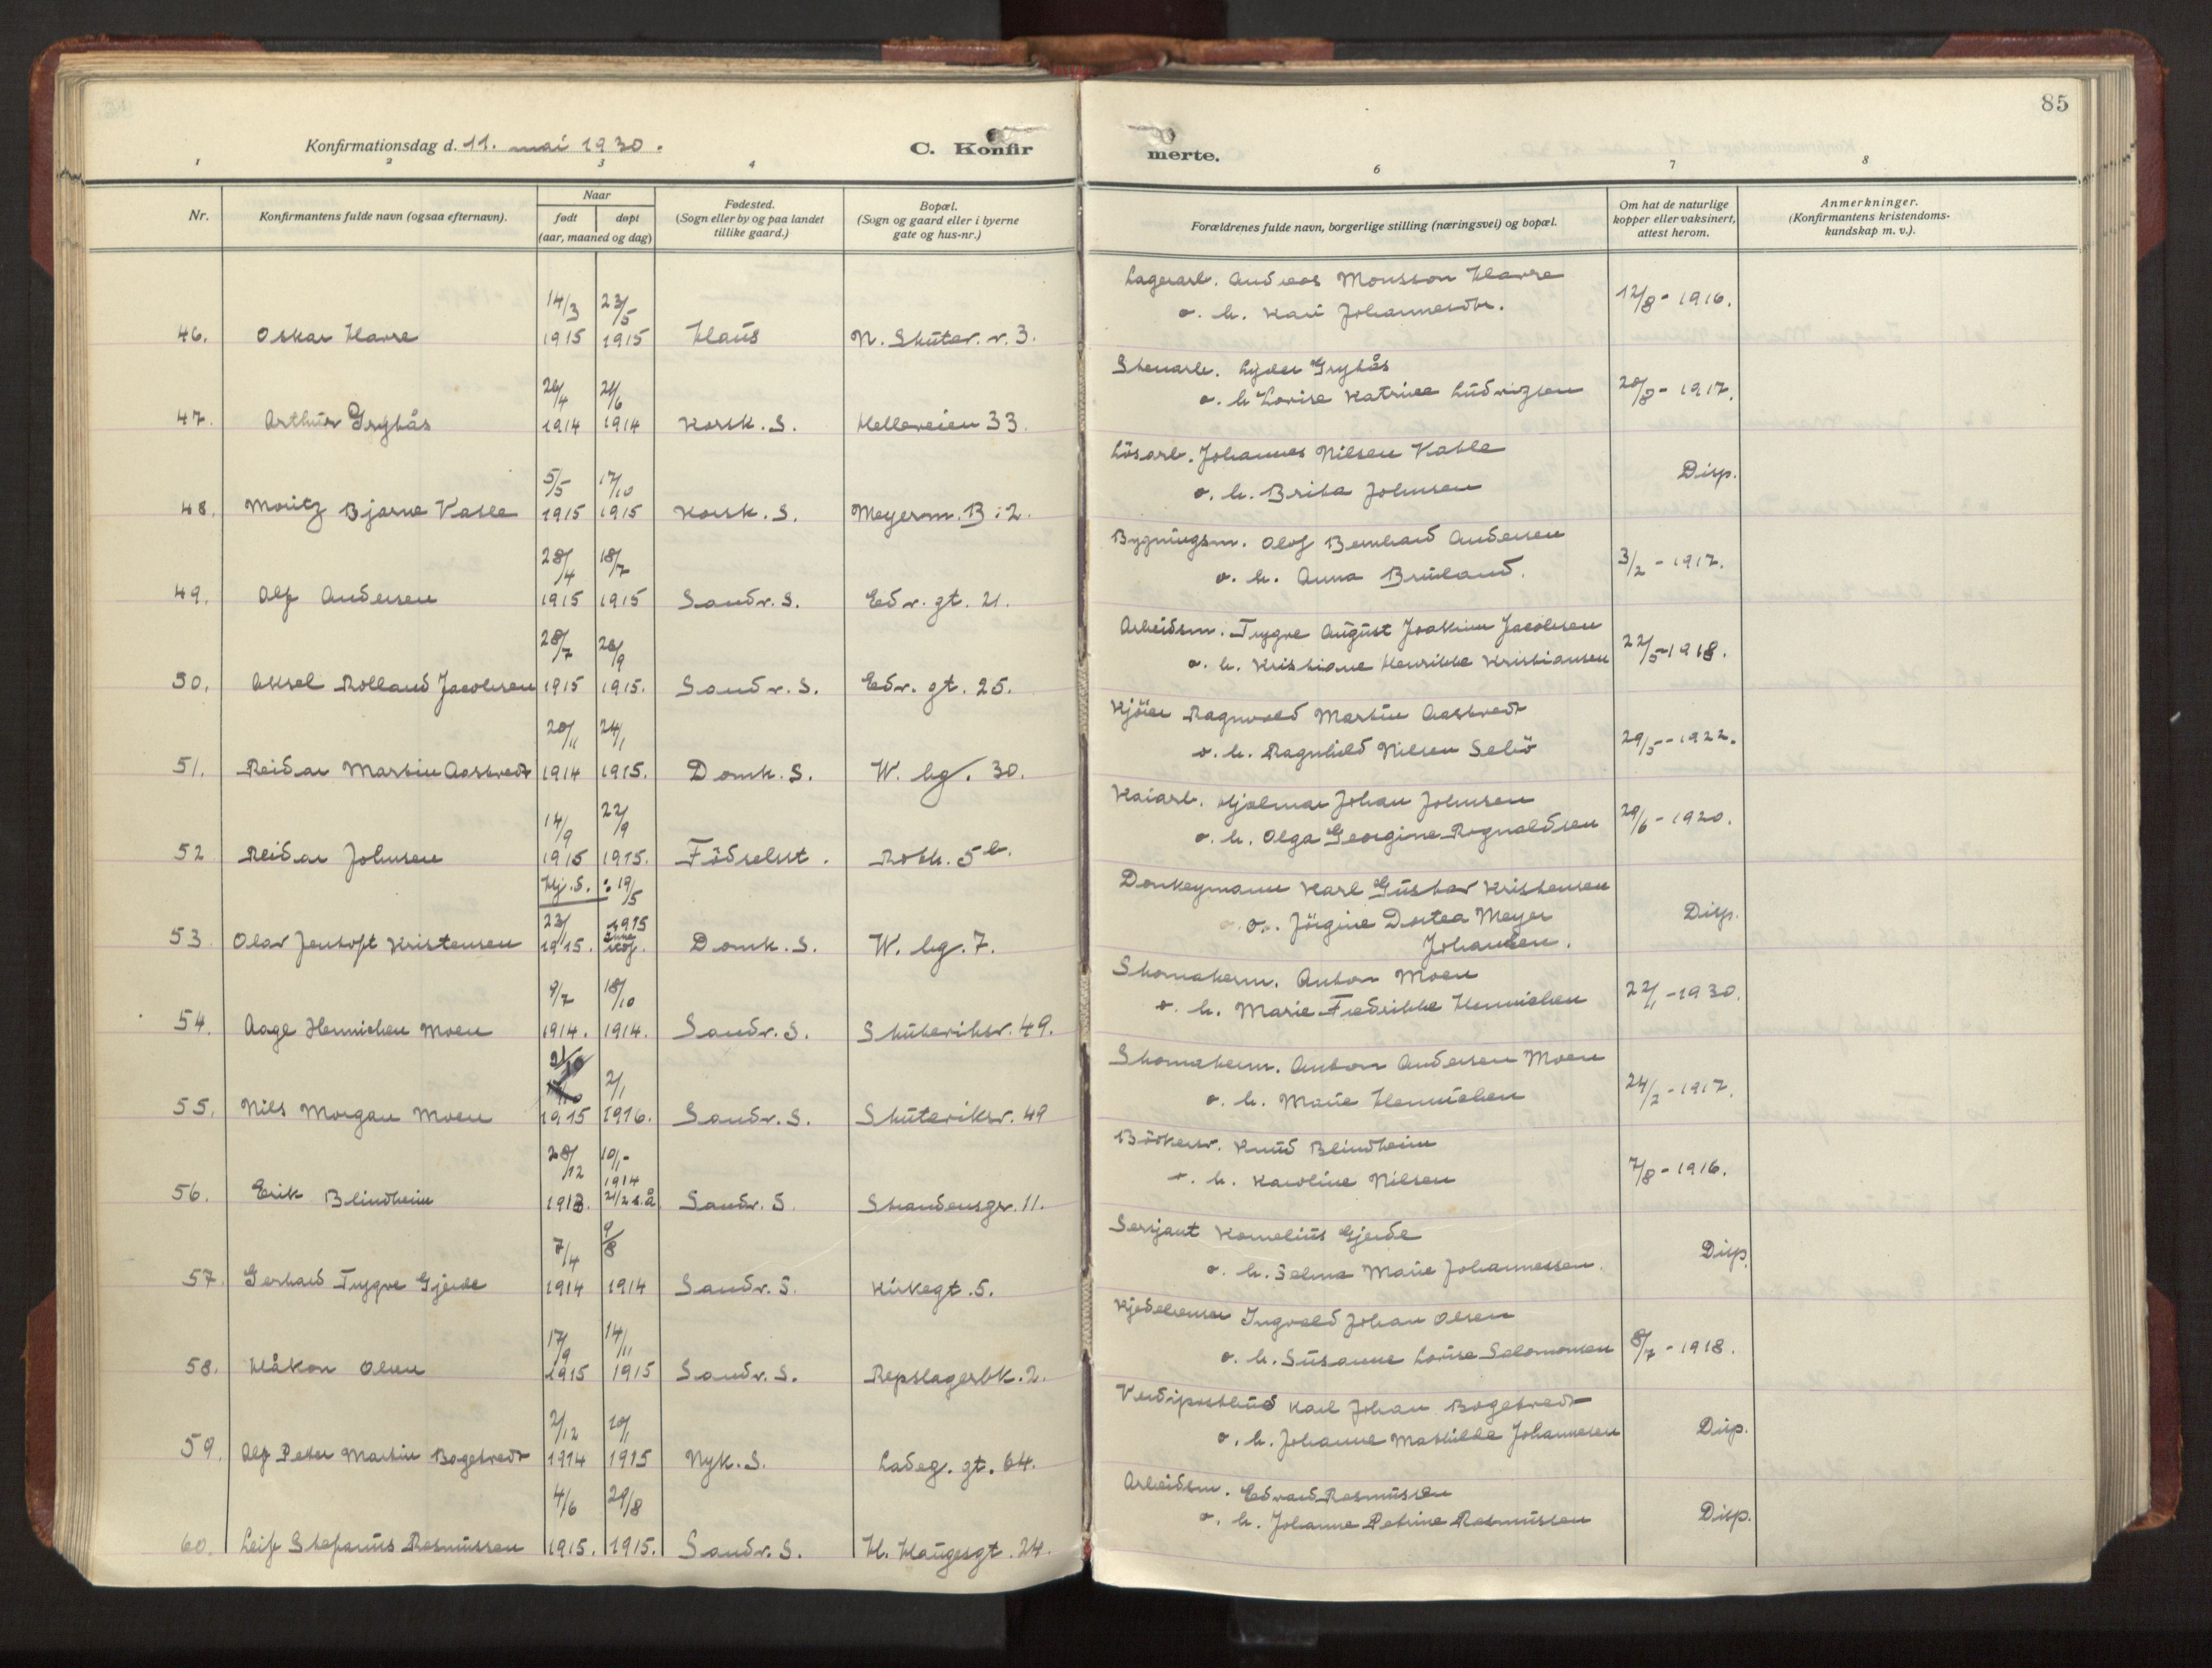 85
Konfirmationsdag d. 11. mai 1930.
C. Konfir
merte.
1 2 3 4 6 7 8
Nr.
Konfirmantens fulde navn (ogsaa efternavn).
Naar
født døpt
(aar, maaned og dag)
Fødested.
(Sogn eller by og paa landet
tillike gaard.)
Bopæl.
(Sogn og gaard eller i byerne
gate og hus-nr.)
Forældrenes fulde navn, borgerlige stilling (næringsvei) og bopæl.
Om hat de naturlige
kopper eller vaksinert,
attest herom.
Anmerkninger.
(Konfirmantens kristendoms-
kundskap m. v.).
14/3 23/5 Lagerarb. Andreas Monsson Havre
o. h. Kari Johannesdtr. 12/8 - 1916.
46. Oskar Havre 1915 1915 Haus N. Skutev. v. 3.
26/4 21/6 Stenarb. Lyder
o. h. Lovise Katrine Ludvigsen 20/8 - 1917.
47. Arthur 1914 1914 Korsk. S. Helleveien 33.
5/5 17/10 Løsarb. Johannes Nilsen Vatle
o. h. Brita Johnsen Disp.
48. Moritz Bjarne Vatle 1915 1915 Korsk. S. Meyerm. B: 2.
28/4 18/7 Bygningsm. Olof Bernhard Andersen
o. h. Anna Bruland. 3/2 - 1917.
49. Alf Andersen 1915 1915 Sandv. S. Edv. gt. 21.
28/7 26/9 Arbeidsm. Trygve August Joakim Jacobsen
o. h. Kristiane Henrikke Kristiansen 22/5 - 1918.
50. Aksel Rolland Jacobsen 1915 1915. Sandv. S. Edv. gt. 25.
20/11 24/1 Kjører Ragnvald Martin Aastvedt
o. h. Ragnhild Nilsen Selø 29/5 - 1922.
51. Reidar Martin Aastvedt 1914 1915. Domk. S. W. bg. 30.
14/9 22/9 Kaiarb. Hjalmar Johan Johnsen
o. h. Olga Georgine Ragnvaldsen 29/6 - 1920.
52 Reidar Johnsen 1915 1915. Fødselsst. Rotth. 5 b.
Hj. S.: 19/5 Donkeymann Karl Gustav Kristensen
23/1 1915 o. Jørgine Dortea Meyer Disp.
Johansen.
53. Olav Jentoft Kristensen 1915. Domk. S. W. bg. 7.
9/7 18/10 Skomakerm. Anton Moen
o. h. Marie Fredrikke Hennichen 22/1 - 1930.
54. Aage Hennichen Moen 1914. 1914. Sandv. S. Skuteviksv. 49.
21/10 2/1 Skomakerm. Anton Andersen Moen
o. h. Marie Hennichen 24/2 - 1917.
55. Nils Morgan Moen 1915 1916. Sandv. S. Skuteviksv. 49
28/12 10/1 - 1914 Bøtkersv. Knud Blindheim
o. h. Karoline Nilsen 7/8 - 1916.
56. Erik Blindheim 1913. 21/2 s. å. Sandv. S. Skandensgr. 11.
7/4 9/8 Sersjant Kornelius Gjerde
o. h. Selma Marie Johannessen. Disp.
57. Gerhard Trygve Gjerde 1914 1914 Sandv. S. Kirkegt. 5.
17/9 14/11 Kjedelrenser Ingvald Johan Olsen
o. h. Susanne Lovise Salomonsen 8/7 - 1918.
58. Håkon Olsen 1915 1915 Sandv. S. Repslagerbk. 2.
2/12 10/1 Verdipostbud Karl Johan Bogetvedt
o. h. Johanne Mathilde Johannesen Disp.
59. Alf Peter Martin Bogetvedt 1914 1915 Nyk. S. Ladeg. gt. 64.
4/6 29/8 Arbeidsm. Edvard Rasmussen
o. h. Johanne Petrine Rasmussen Disp.
60. Leif Stefanus Rasmussen 1915. 1915. Sandv. S. H. Haugesgt. 24.